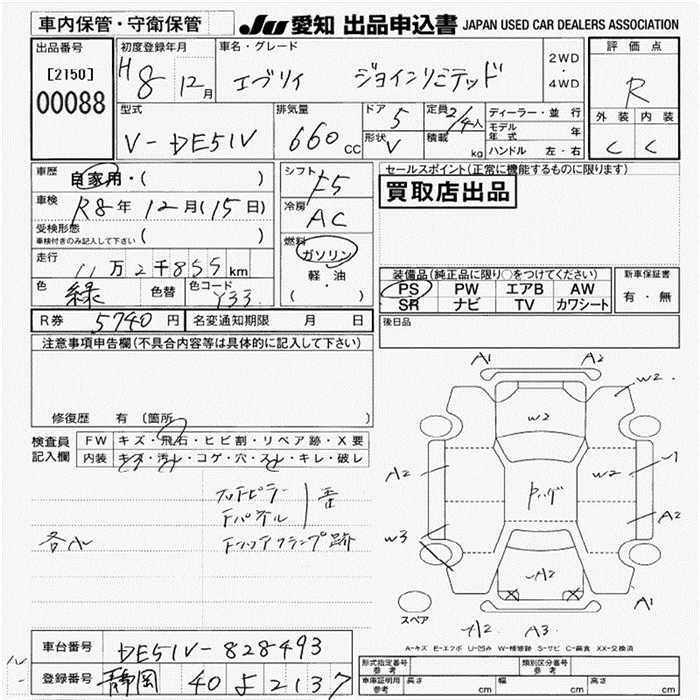 車内保管・守衛保管
JU 愛知 出品申込書 JAPAN USED CAR DEALERS ASSOCIATION
出品番号 初度登録年月 車名・グレード 評価点
[2150] H8 12月 エブリイ ジョインリミテッド 2WD・4WD R
00088
型式 排気量 ドア 定員 ディーラー・並行 外装 内装
V-DE51V 660cc 5 2/4人 モデル年式 年 C C
形状 V 積載 kg ハンドル 左・右
車歴 自家用・( ) シフト F5 セールスポイント(正常に機能するものに限ります)
買取店出品
車検 R8年12月(15日) 冷房 AC
受検形態 ( )
車検付きのみ記入して下さい
燃料 ガソリン
走行 11万2千855km 軽油
( ・ )
装備品(純正品に限り○をつけてください) 新車保証書
色 緑 色替 色コード Y33 PS PW エアB AW 有・無
SR ナビ TV カワシート
R券 5740円 名変通知期限 月 日 後日品
注意事項申告欄(不具合内容等は具体的に記入して下さい)
修復歴 有 (箇所 )
A1 A2
W2
W2
検査員 FW キズ・飛石・ヒビ割・リペア跡・X要
記入欄 内装 キズ・汚れ・コゲ・穴・スレ・キレ・破レ
A2 W2
A2
W3
各小
クランプ跡
A2
A1
スペア
A2 A3
A-キズ E-エクボ U-凹み W-補修跡 S-サビ C-腐食 XX-交換済
車台番号 DE51V-828493
登録番号 静岡 40 よ 2137
形式指定番号 参考 類別区分番号 参考
車庫証明用 参考 長さ cm 幅 cm 高さ cm